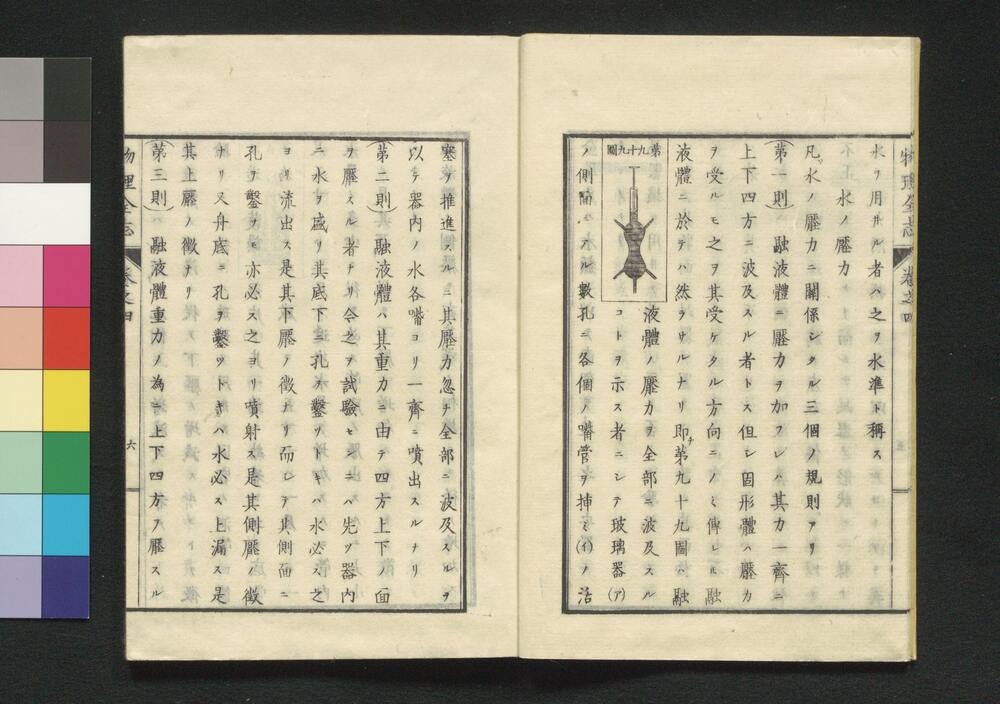 物理全志
卷之四
水ヲ用井ル者ハ之ヲ水準ト稱ス
水ノ壓力
凡ソ水ノ壓力ニ關係シタル三個ノ規則アリ
(第一則) 融液體ニ壓力ヲ加フレハ其力一齊ニ
上下四方ニ波及スル者トス但シ固形體ハ壓力
ヲ受ルモ之ヲ其受ケタル方向ニノミ傳レヒ融
液體ニ於テハ然ラサルナリ即チ第九十九圖ハ融
第九十九圖
液體ノ壓力ヲ全部ニ波及スル
コトヲ示ス者ニシテ玻璃器(ア)
ノ側面ニアル數孔ニ各個ノ嘴管ヲ挿ミ(イ)ノ活
塞ヲ推進スルニ其壓力忽チ全部ニ波及スルヲ
以テ器内ノ水各嘴ヨリ一齊ニ噴出スルナリ
(第二則) 融液體ハ其重力ニ由テ四方上下ノ面
ヲ壓スル者ナリ今之ヲ試驗セシニハ先ツ器内
ニ水ヲ盛リ其底下ニ孔ヲ鑿ツトキハ水必ス之
ヨリ流出ス是其下壓ノ徴ナリ而シテ其側面ニ
孔ヲ鑿ツモ亦必ス之ヨリ噴射ス是其側壓ノ徴
ナリ又舟底ニ孔ヲ鑿ツトキハ水必ス上漏ス是
其上壓ノ徴ナリ
(第三則) 融液體重力ノ為ニ上下四方ヲ壓スル
物理全志
卷之四
六